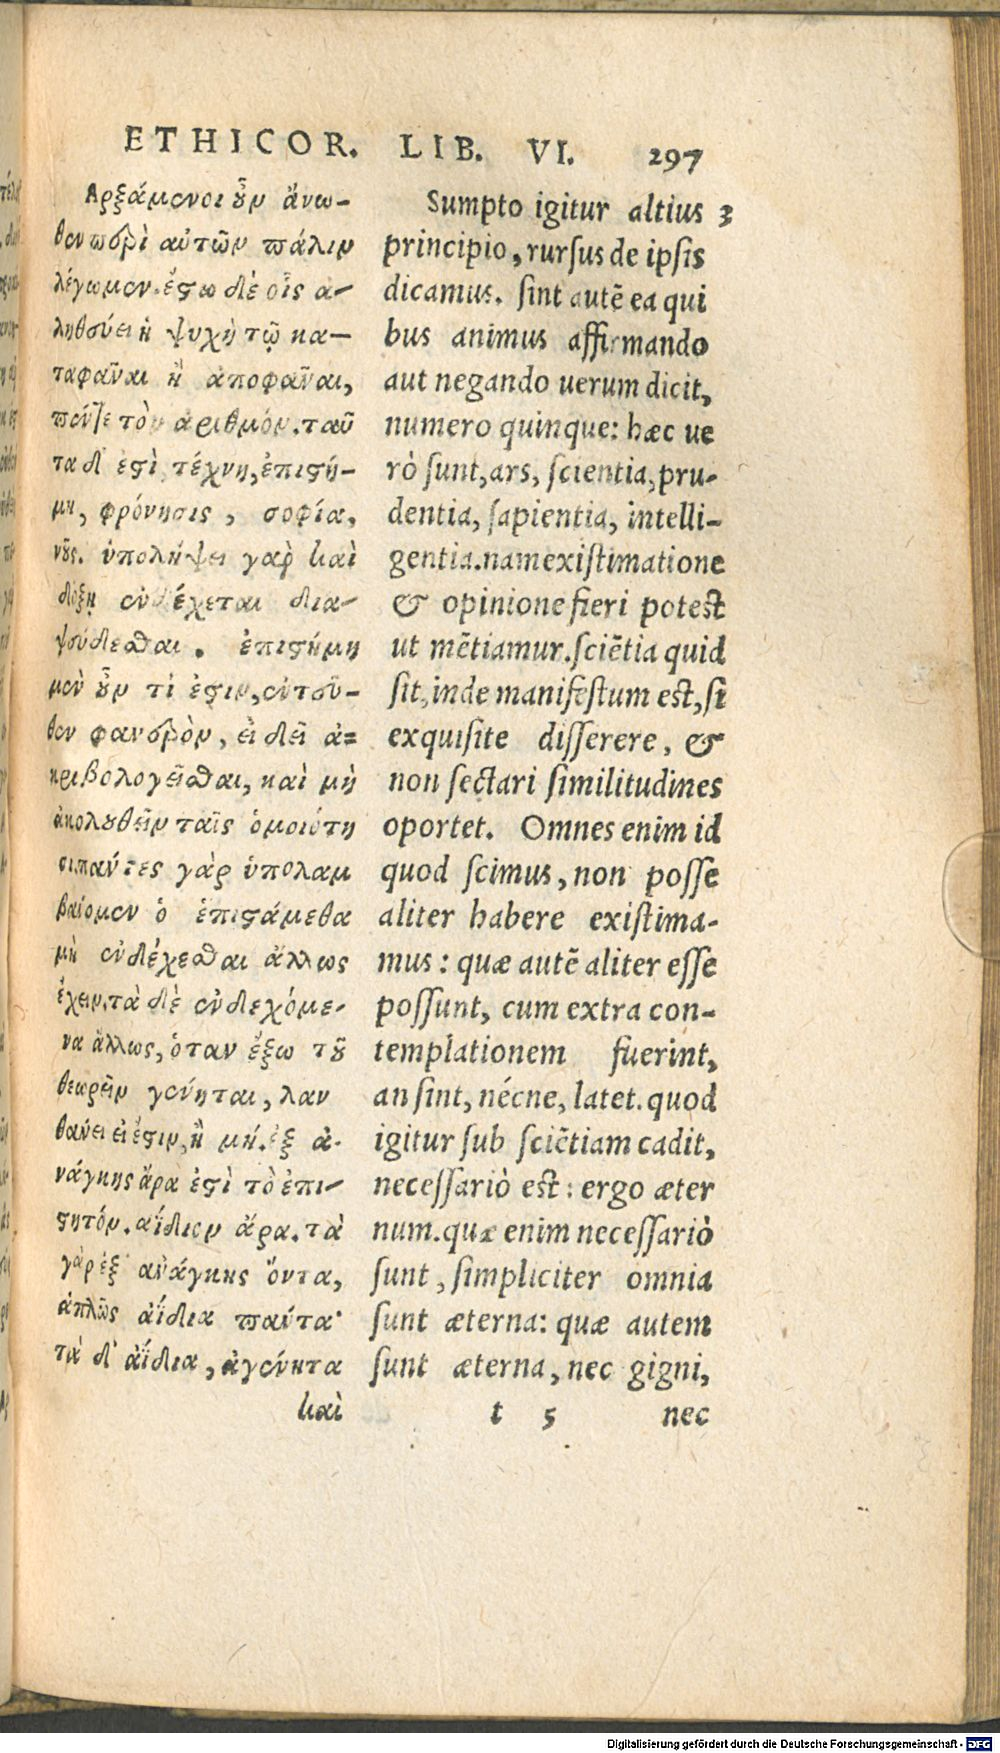 ETHICOR. LIB. VI. 297
Αρξάμενοι οὖν ἄνω-
θεν περὶ αὐτῶν πάλιν
λέγωμεν. ἔστω δὲ οἷς ἀ-
ληθεύει ἡ ψυχὴ τῷ κα-
ταφᾶναι ἢ ἀποφᾶναι,
πέντε τὸν ἀριθμόν. ταῦ
τα δ' ἐστὶ τέχνη, ἐπιστή-
μη, φρόνησις, σοφία,
νοῦς. ὑπολήψει γὰρ καὶ
δόξῃ ἐνδέχεται δια-
ψεύδεσθαι. ἐπιστήμη
μὲν οὖν τί ἐστιν, ἐντεῦ-
θεν φανερὸν, εἰ δεῖ ἀ-
κριβολογεῖσθαι, καὶ μὴ
ἀκολουθεῖν ταῖς ὁμοιότη
σι. πάντες γὰρ ὑπολαμ
βάνομεν ὃ ἐπιστάμεθα
μὴ ἐνδέχεσθαι ἄλλως
ἔχειν. τὰ δὲ ἐνδεχόμε-
να ἄλλως, ὅταν ἔξω τοῦ
θεωρεῖν γένηται, λαν
θάνει εἰ ἔστιν, ἢ μή. ἐξ ἀ-
νάγκης ἄρα ἐστὶ τὸ ἐπι-
στητόν. ἀΐδιον ἄρα. τὰ
γὰρ ἐξ ἀνάγκης ὄντα,
ἁπλῶς ἀΐδια πάντα·
τὰ δ' ἀΐδια, ἀγένητα
καὶ
Sumpto igitur altius 3
principio, rursus de ipsis
dicamus. sint autẽ ea qui
bus animus affirmando
aut negando uerum dicit,
numero quinque: hæc ue
rò sunt, ars, scientia, pru-
dentia, sapientia, intelli-
gentia. nam existimatione
& opinione fieri potest
ut mẽtiamur. sciẽtia quid
sit, inde manifestum est, si
exquisite disserere, &
non sectari similitudines
oportet. Omnes enim id
quod scimus, non posse
aliter habere existima-
mus: quæ autẽ aliter esse
possunt, cum extra con-
templationem fuerint,
an sint, nécne, latet. quod
igitur sub sciẽtiam cadit,
necessariò est: ergo æter
num. quæ enim necessariò
sunt, simpliciter omnia
sunt æterna: quæ autem
sunt æterna, nec gigni,
t 5 nec
Digitalisierung gefördert durch die Deutsche Forschungsgemeinschaft - DFG